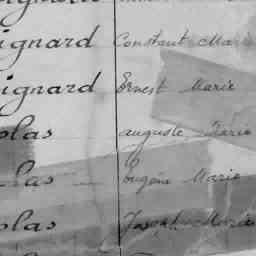 ignard Constant Marie
ignard Ernest Marie
olas auguste Marie
las Eugène Marie
olas Joseph Marie